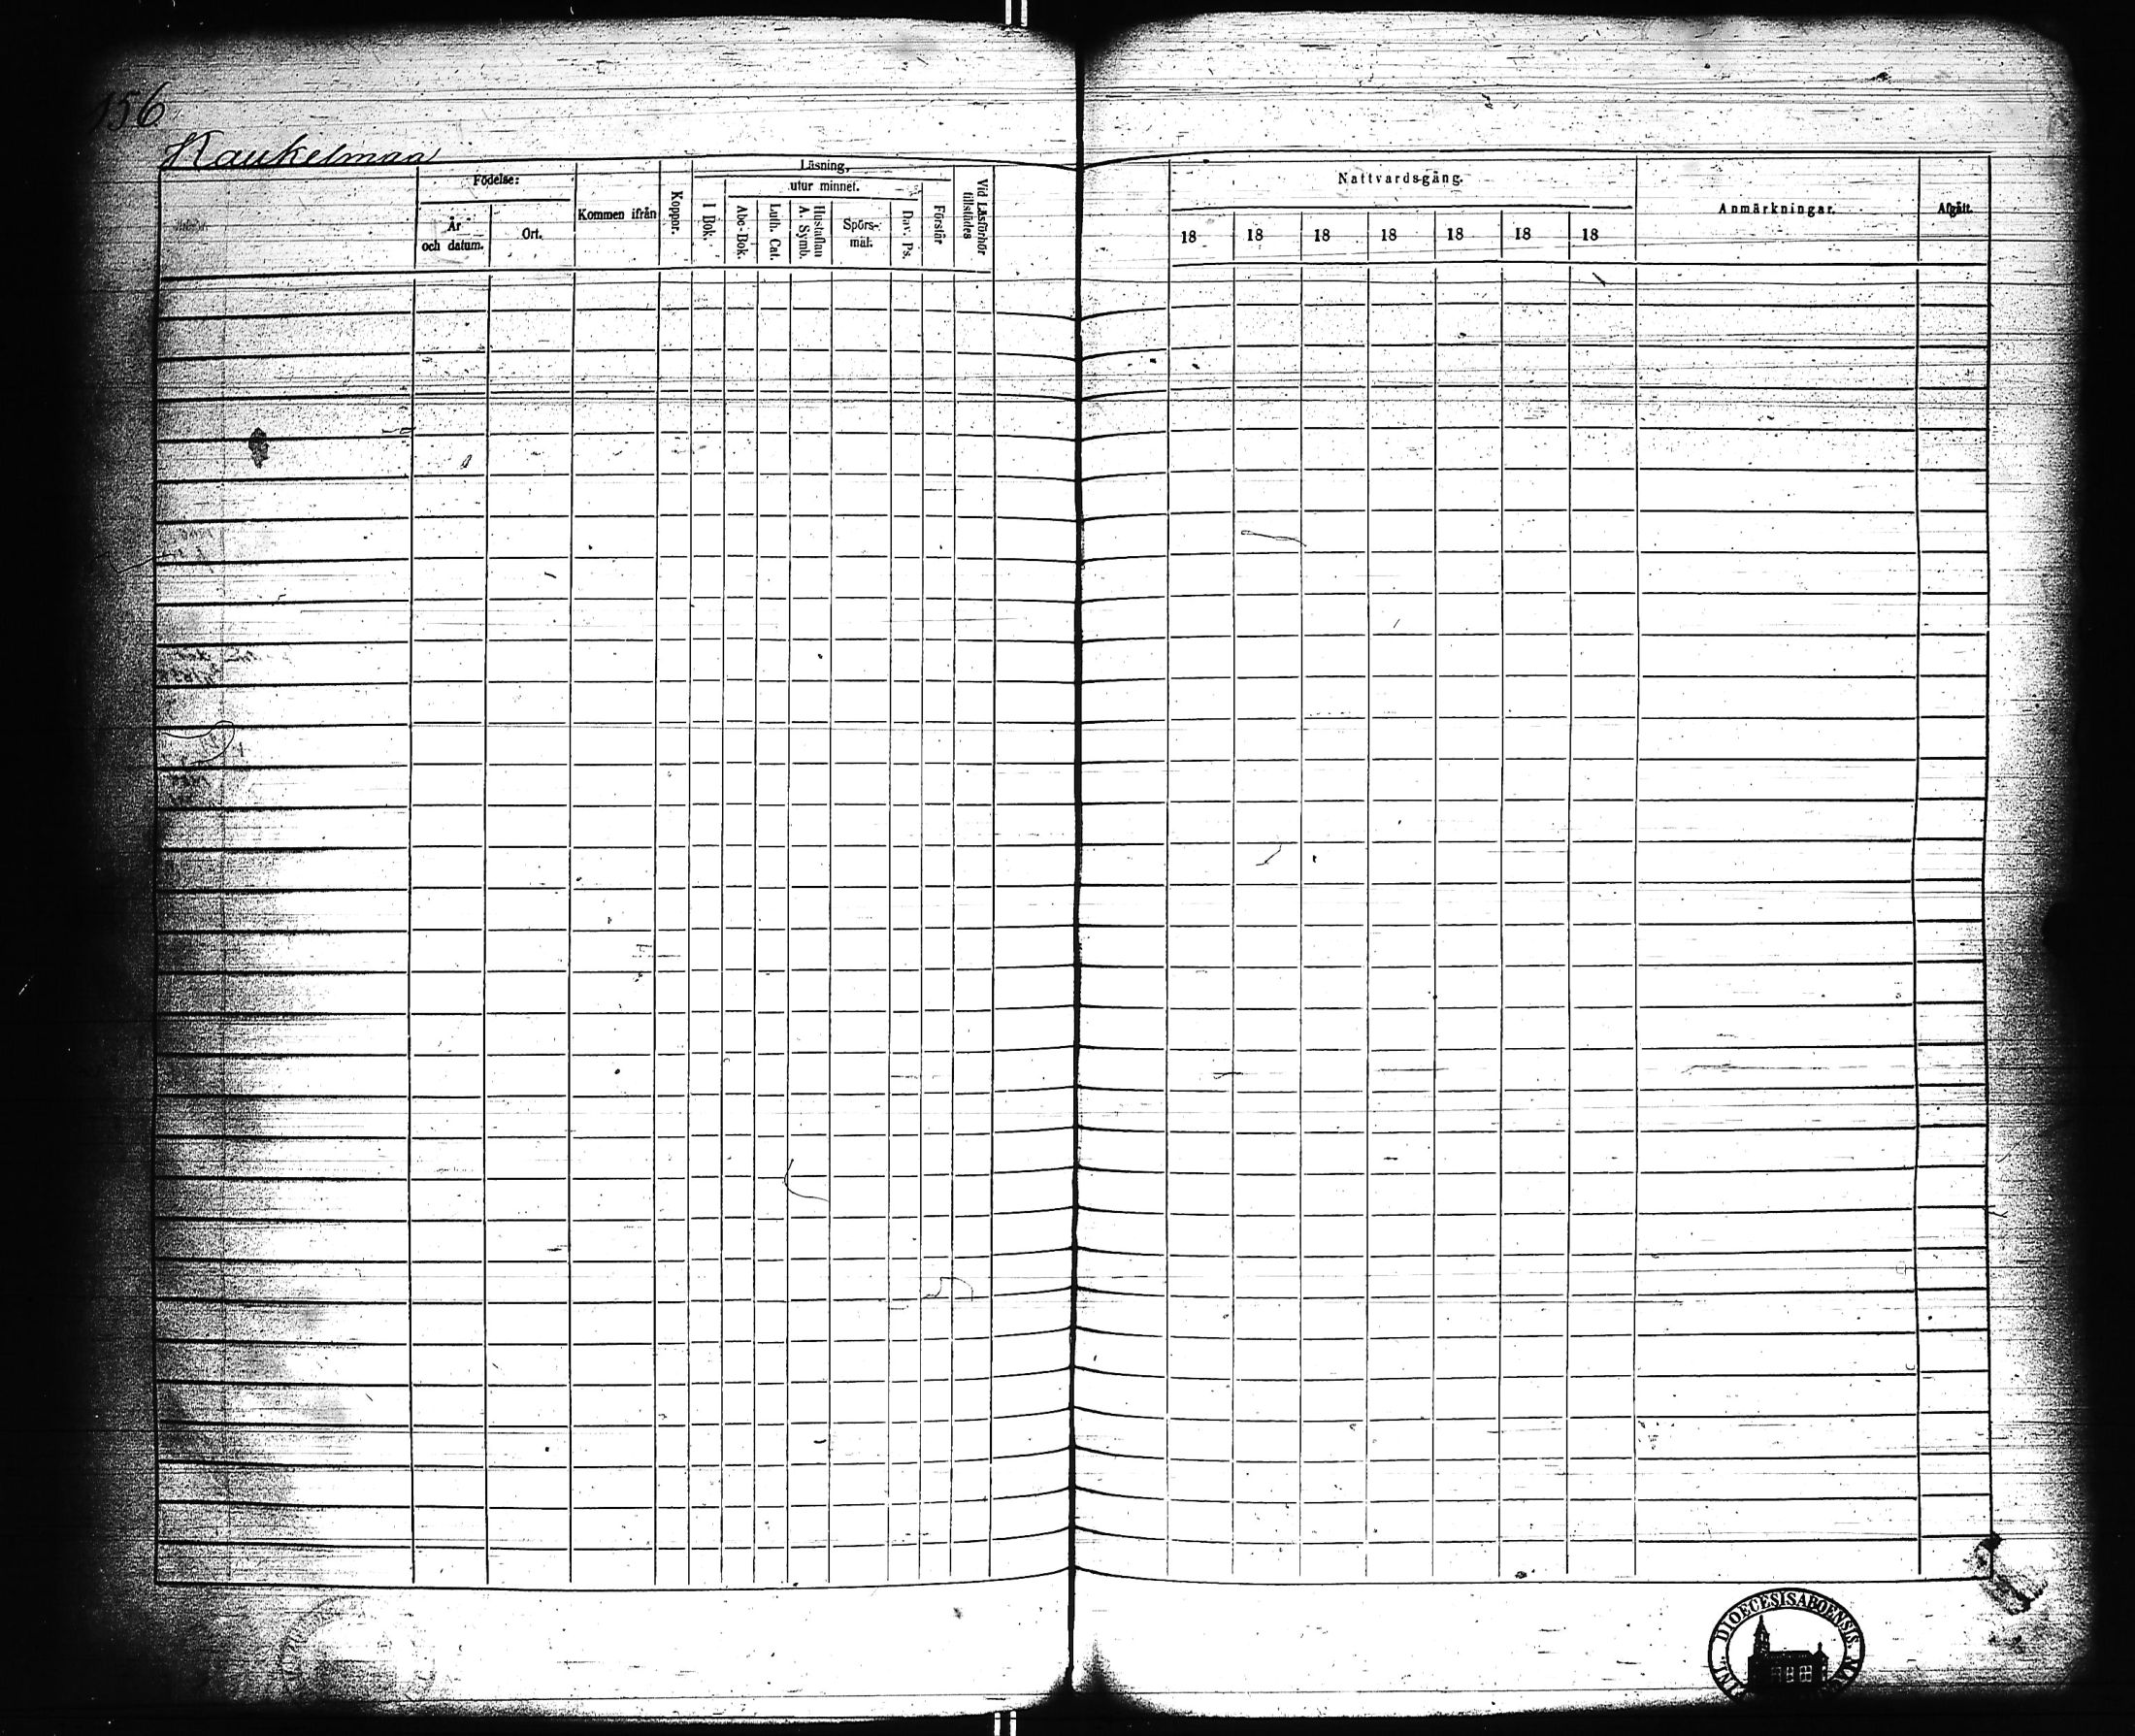 156
Kaukelmaa
Födelse:
År
och datum.
Ort.
Kommen ifrån
Koppor.
Läsning,
utur minnet.
I Bok.
Abc-Bok.
Luth. Cat.
Hustaflan
A. Symb.
Spörs-
mål.
Dav. Ps.
Förstår
Vid Läsförhör
tillstädes
Nattvardsgång.
18 18 18 18 18 18 18
Anmärkningar.
Afgått.
DIOECESIS ABOENSIS